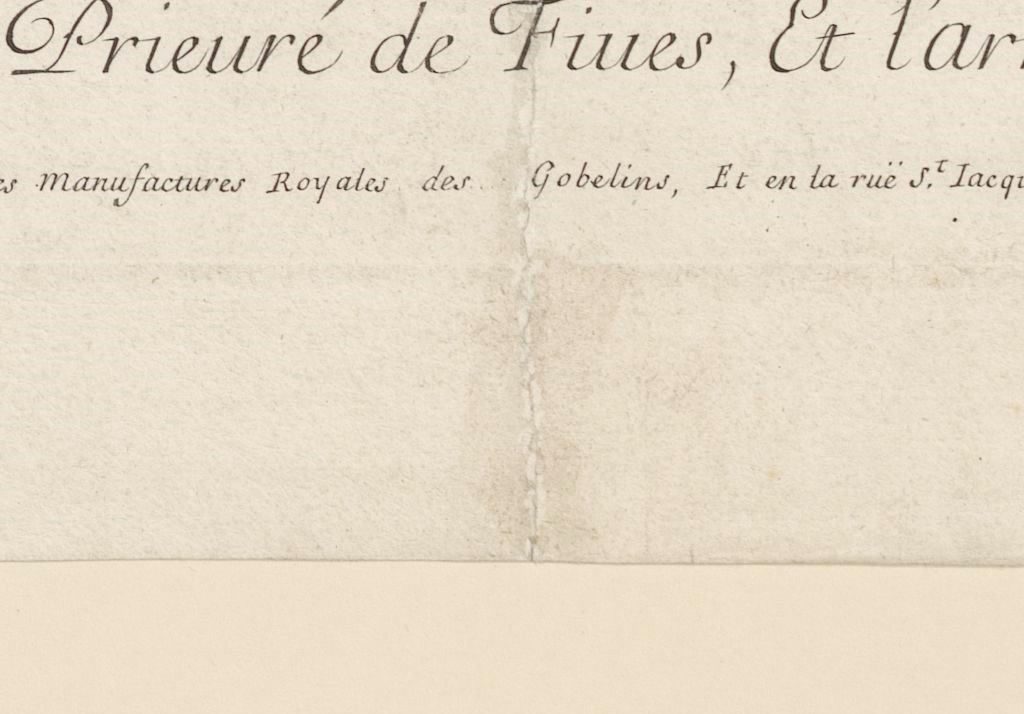 Prieuré de Fiues, Et l'ar
es Manufactures Royales des Gobelins, Et en la ruë S.t Iacqu